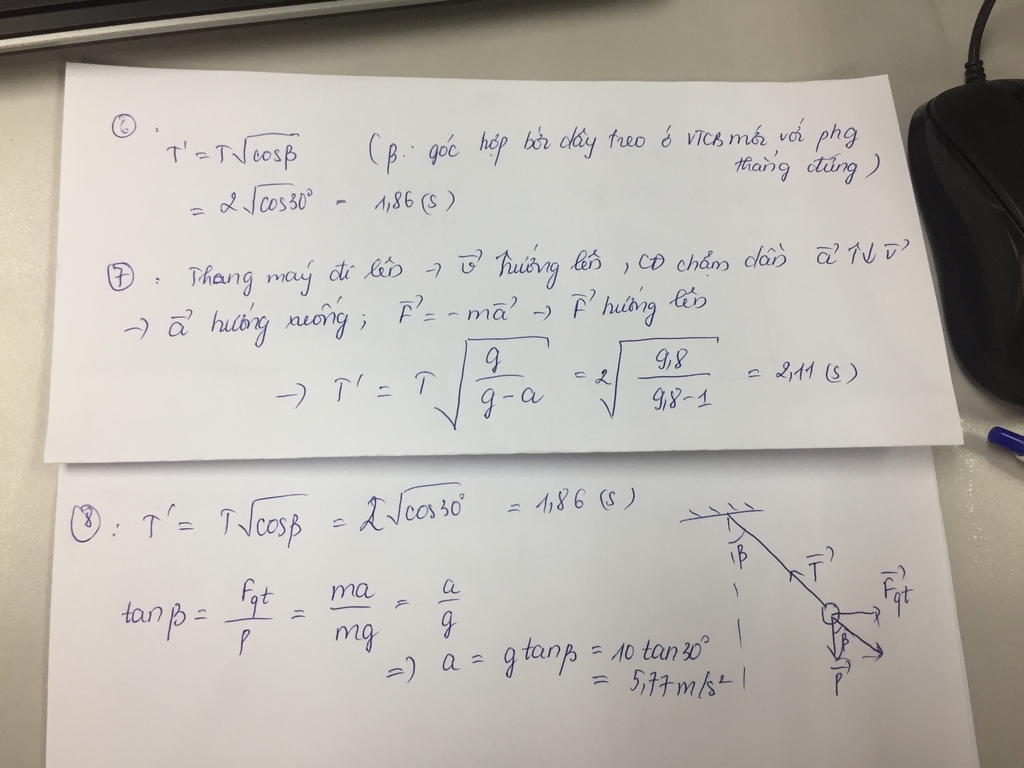 ⑥ :
T' = T√cosβ (β: góc hợp bởi dây treo ở VTCB mới với phg
thẳng đứng)
= 2√cos30° = 1,86 (s)
⑦ : Thang máy đi lên → v⃗ hướng lên, CĐ chậm dần a⃗ ↑↓ v⃗
→ a⃗ hướng xuống; F⃗ = -ma⃗ → F⃗ hướng lên
→ T' = T√(g/(g-a)) = 2√(9,8/(9,8-1)) = 2,11 (s)
⑧ : T' = T√cosβ = 2√cos30° = 1,86 (s)
tanβ = Fqt/P = ma/mg = a/g
⇒ a = gtanβ = 10tan30°
= 5,77m/s²
β
T⃗
F⃗qt
β
P⃗